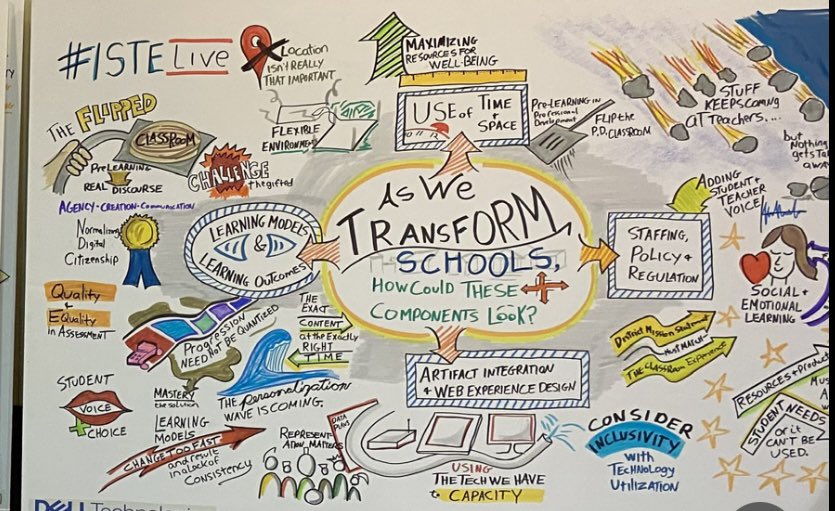 #ISTELive
Location
isn't REALLY
THAT IMPORTANT
MAXIMIZING
RESOURCES FOR
WELL-BEING
THE FLIPPED
CLASSROOM
PreLEARNING
REAL DISCOURSE
CHALLENGE
the gifted
FLEXIBLE
ENVIRONMENT
USE of TIME
& SPACE
Pre-LEARNING IN
Professional
Development
FLIP the
P.D. CLASSROOM
STUFF
KEEPS coming
at TEACHERS...
but
NOTHING
gets
ADDING
STUDENT &
TEACHER
VOICE
AGENCY • CREATION • COMMUNICATION
Normalizing
Digital
Citizenship
LEARNING MODELS
&
LEARNING OUTCOMES
AS WE
TRANSFORM
SCHOOLS,
HOW COULD THESE
COMPONENTS LOOK?
STAFFING,
POLICY &
REGULATION
SOCIAL &
EMOTIONAL
LEARNING
Quality
&
EQUALITY
IN ASSESSMENT
PROGRESSION
NEED NOT BE QUANTIZED
THE
EXACT
CONTENT
at the Exactly
RIGHT
TIME
District Mission Statement
MUST MATCH
THE CLASSROOM EXPERIENCE
ARTIFACT INTEGRATION
& WEB EXPERIENCE DESIGN
STUDENT
VOICE
+ CHOICE
MASTERY
the solution
THE personalization
WAVE IS COMING.
LEARNING
MODELS
CHANGE TOO FAST
and result
in a Lack of
CONSISTENCY
REPRESENT-
ATION MATTERS
DATA
USING
THE TECH WE HAVE
to CAPACITY
CONSIDER
INCLUSIVITY
with
TECHNOLOGY
UTILIZATION
RESOURCES &
STUDENT NEEDS
or it
CAN'T BE
USED.
DELL Technologies